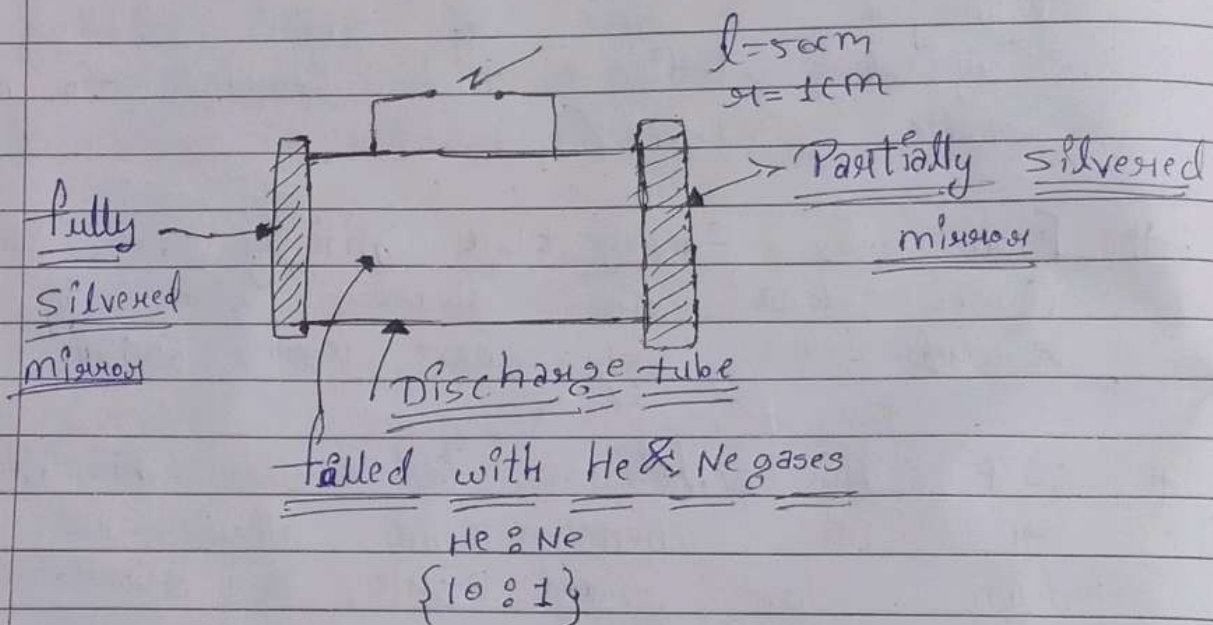 l=50cm
r=1cm
Partially silvered
mirror
fully
silvered
mirror
Discharge tube
filled with He & Ne gases
He : Ne
{10 : 1}